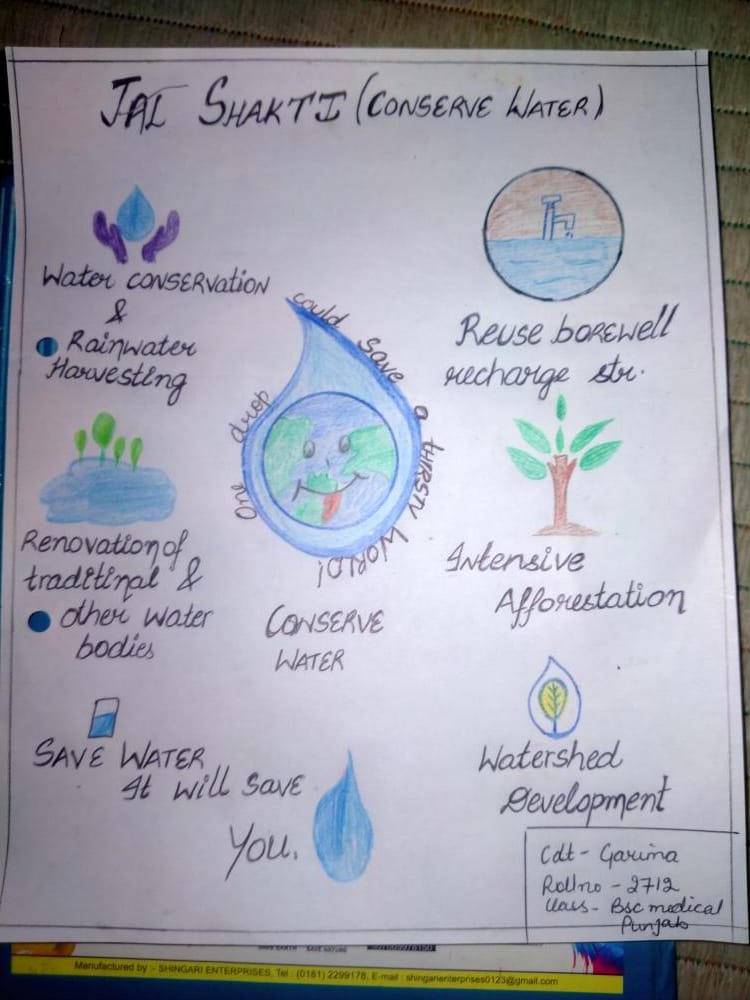 JAL SHAKTI (CONSERVE WATER)
Water CONSERVATION
&
Rainwater
Harvesting
Reuse borewell
recharge str.
One drop could save a thirsty world!
Renovation of
traditinal &
other water
bodies
Intensive
Afforestation
CONSERVE
WATER
SAVE WATER
It will save
You.
Watershed
Development
Cdt - Garima
Rollno - 2712
Class - Bsc medical
Punjab
SAVE EARTH SAVE NATURE
Manufactured by :- SHINGARI ENTERPRISES, Tel : (0161) 2299178, E-mail : shingarienterprises0123@gmail.com